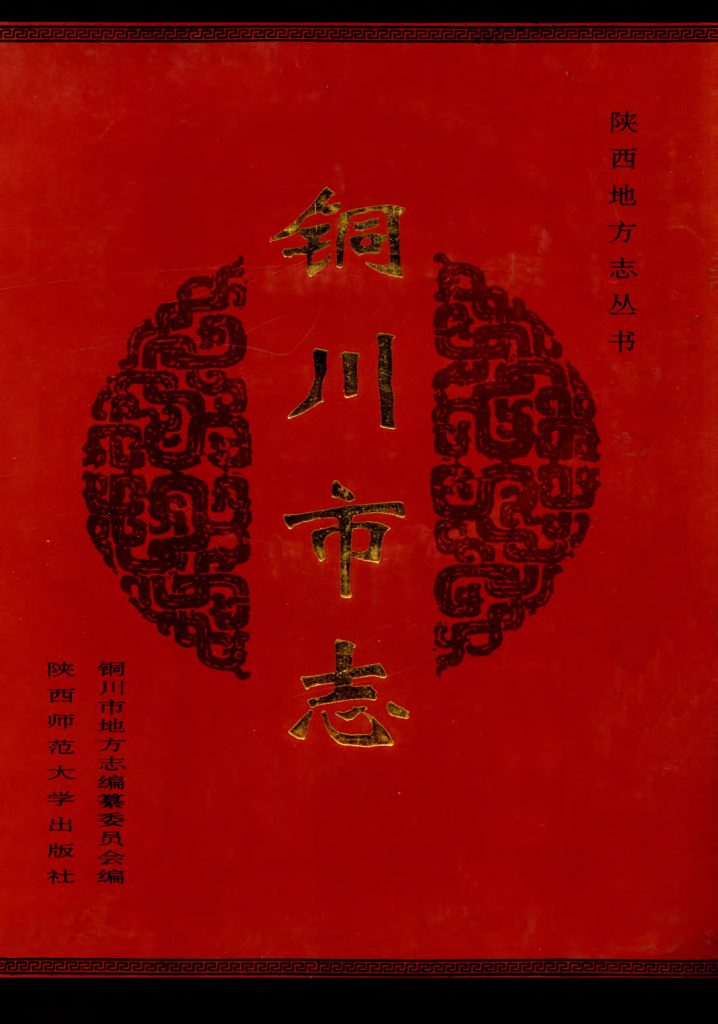 陕西地方志丛书
铜川市志
铜川市地方志编纂委员会编
陕西师范大学出版社